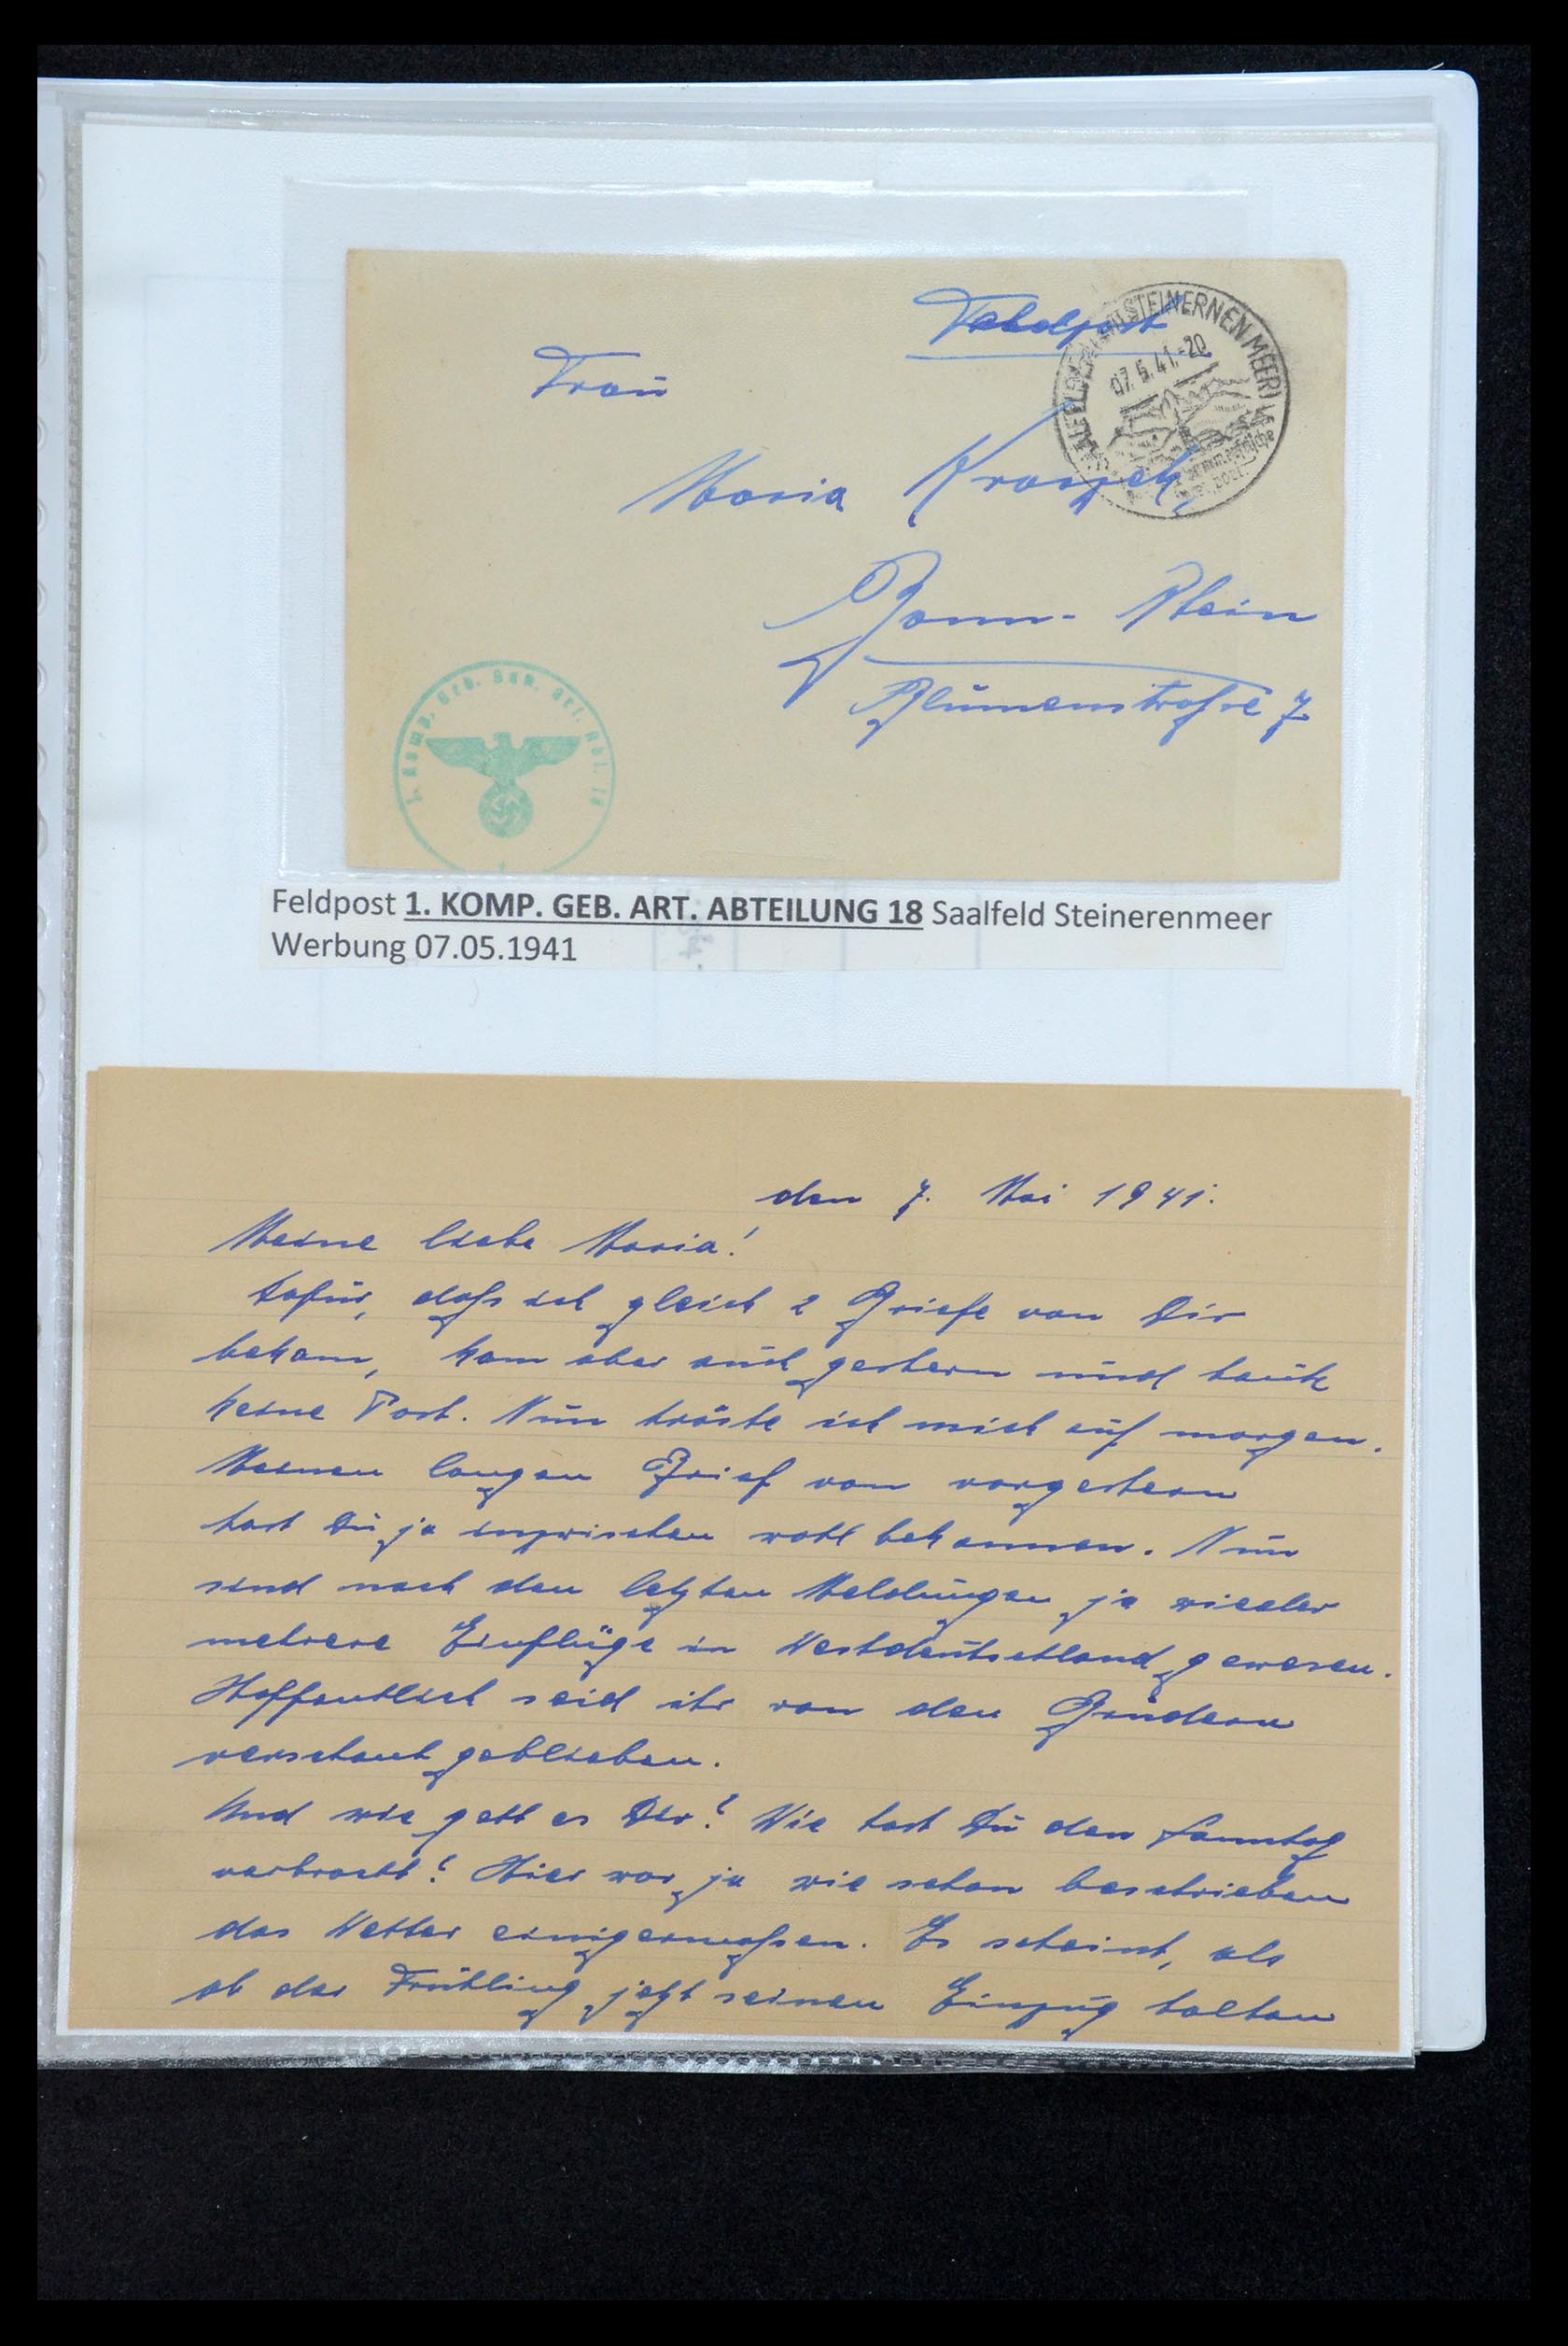 Feldpost
SAALFELDEN AM STEINERNEN MEER
07.5.41.-20
Frau
Maria
Bonn- Rhein
Blumenstraße 7
Feldpost 1. KOMP. GEB. ART. ABTEILUNG 18 Saalfeld Steinerenmeer
Werbung 07.05.1941
den 7. Mai 1941.
Meine liebe Maria!
dafür, daß ich gleich 2 Briefe von Dir
bekam, kam aber auch gestern und heute
keine Post. Nun tröste ich mich auf morgen.
Meinen langen Brief von vorgestern
hast Du ja inzwischen wohl bekommen. Nun
sind nach den letzten Meldungen ja wieder
mehrere Einflüge in Westdeutschland gewesen.
Hoffentlich seid ihr von den Brüdern
verschont geblieben.
Und wie geht es Dir? Wie hast Du den Sonntag
verbracht? Hier war ja wie schon beschrieben
das Wetter einigermaßen. Es scheint, als
ob der Frühling jetzt seinen Einzug halten